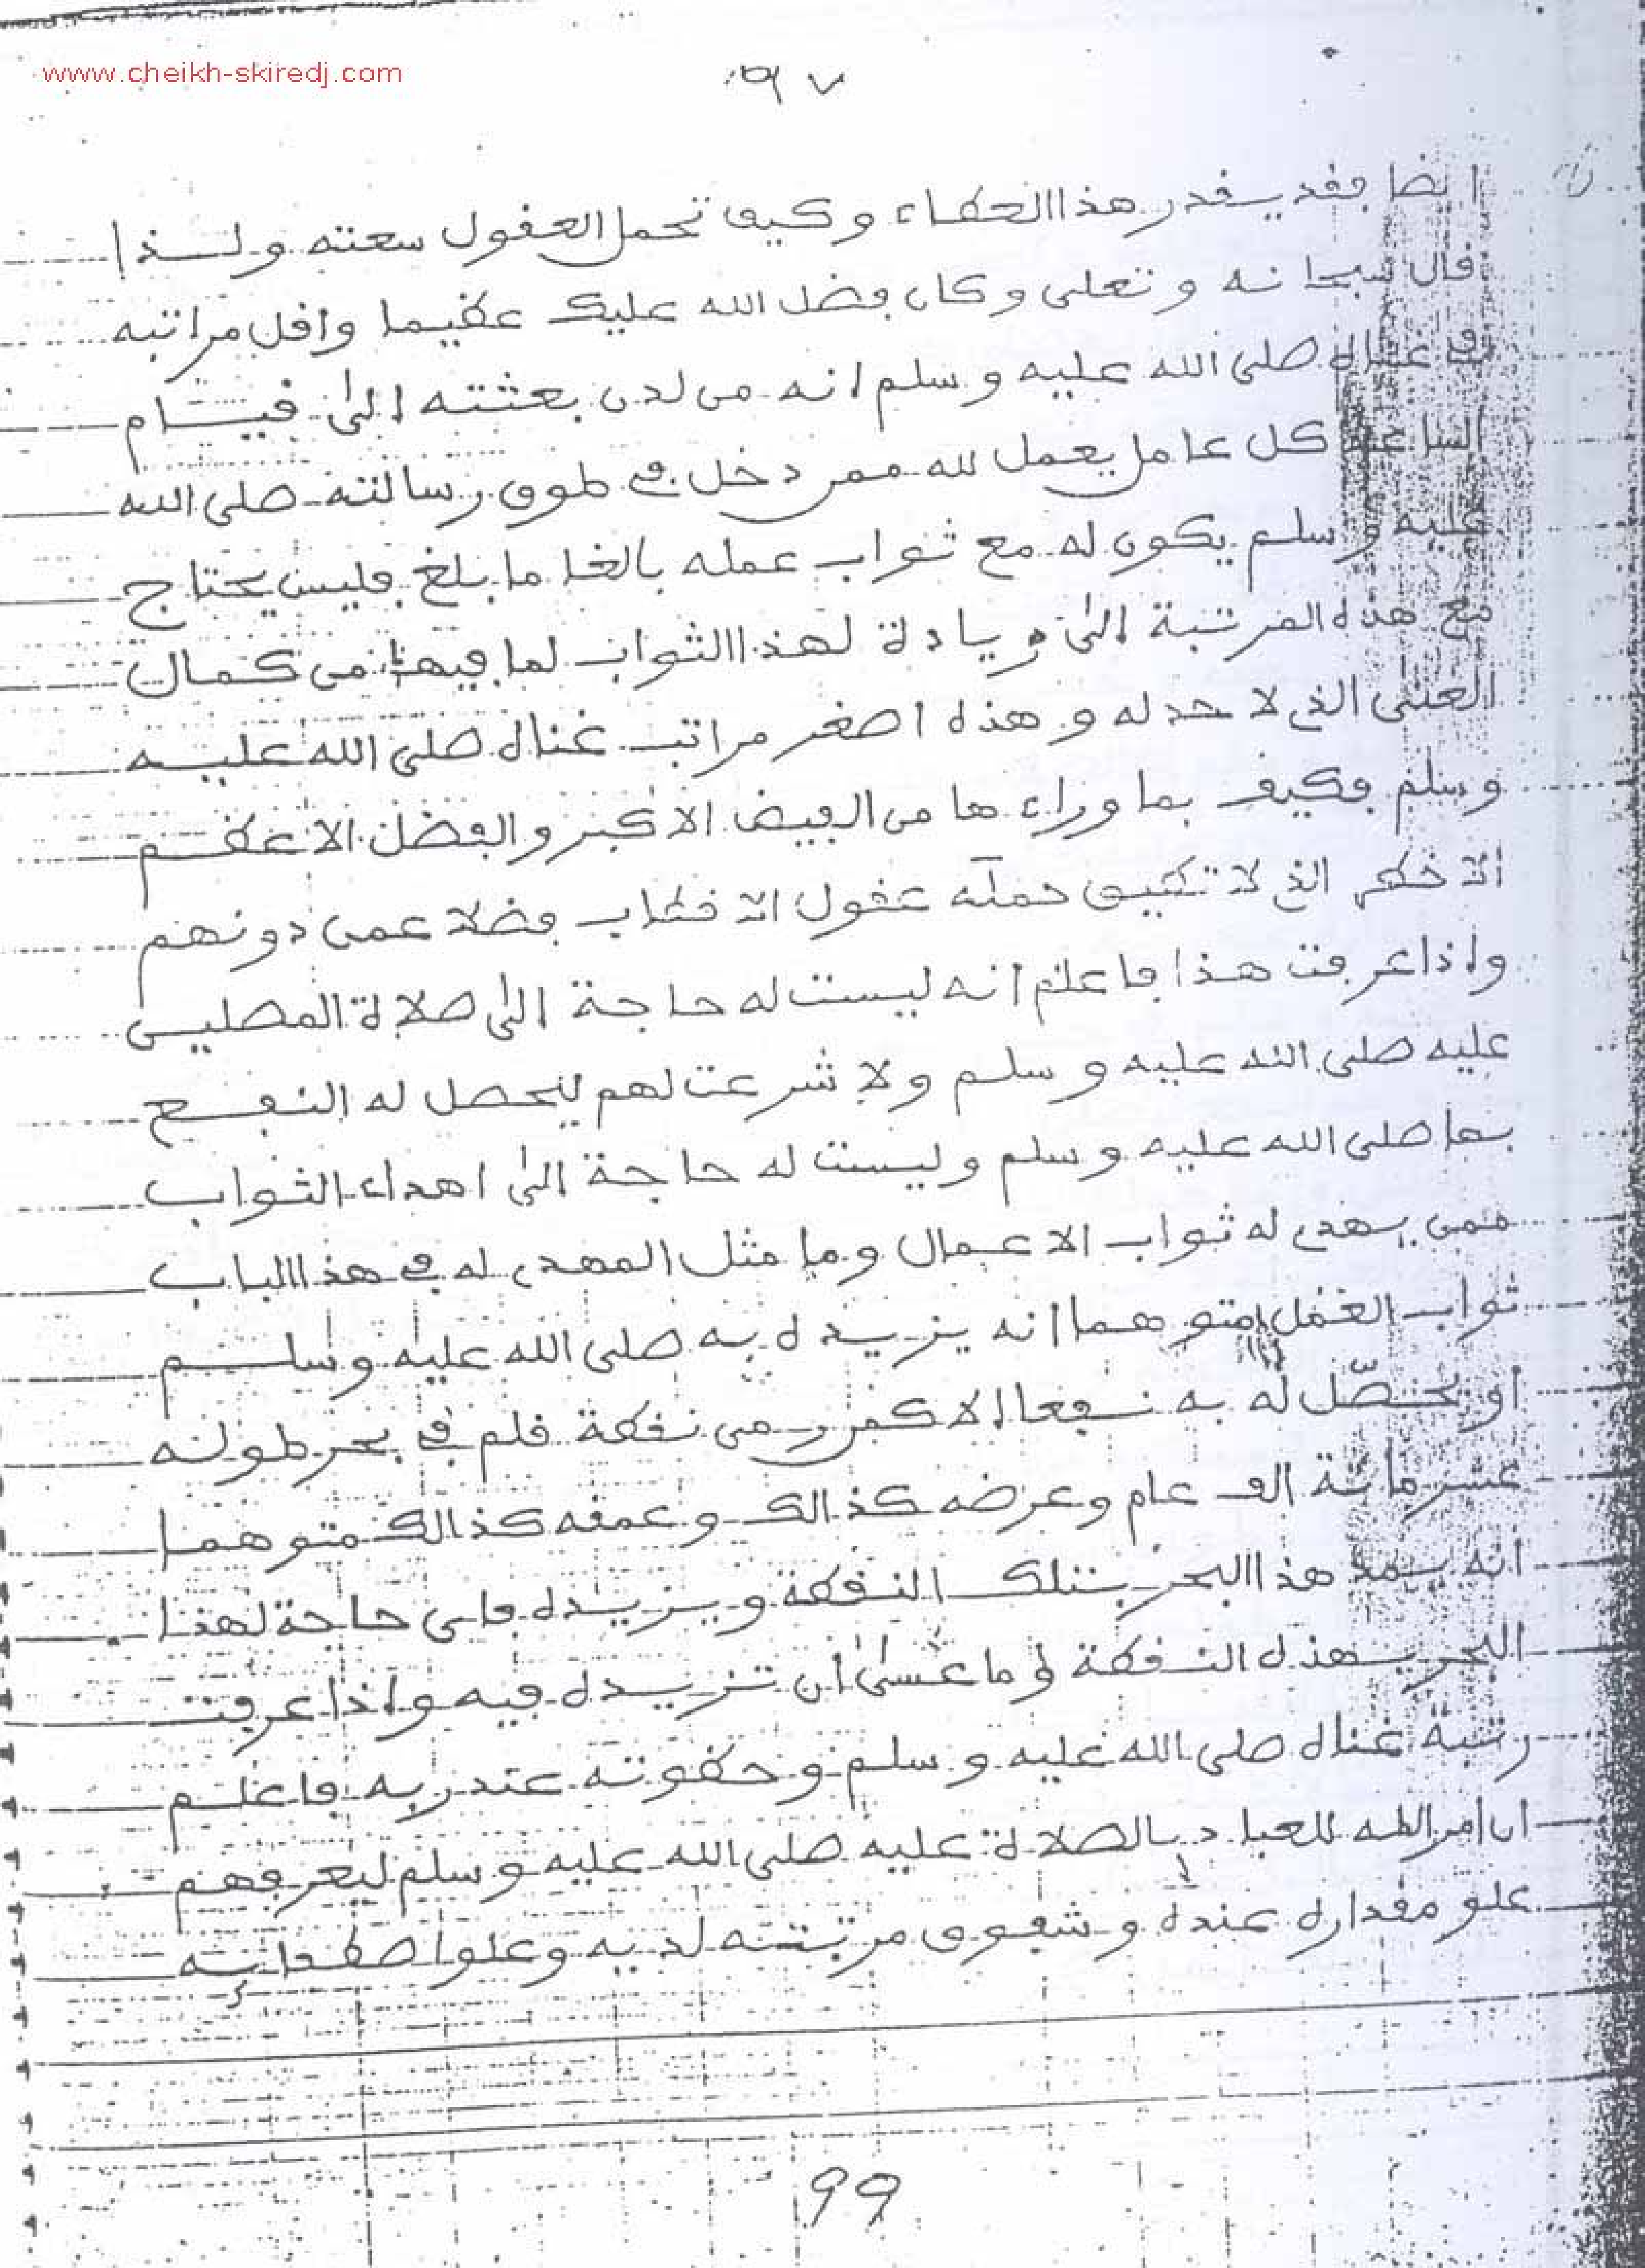 www.cheikh-skiredj.com
٩٧
ايضا فقد يقدر هذا العطاء وكيف تحمل العقول سعته ولذا
قال سبحانه وتعلى وكان فضل الله عليك عظيما واقل مراتبه
في غناه صلى الله عليه وسلم انه من لدن بعثته الى قيام
الساعة كل عامل يعمل لله ممن دخل في طوق رسالته صلى الله
عليه وسلم يكون له مع ثواب عمله بالغا ما بلغ فليس يحتاج
مع هذه المرتبة الى زيادة لهذا الثواب لما فيها من كمال
الغنى الذى لا حد له وهذه اصغر مراتب غناه صلى الله عليه
وسلم فكيف بما وراء ها من الفيض الاكبر والفضل الاعظم
الاخطر الذى لا تطيق حمله عقول الاقطاب فضلا عمن دونهم
واذا عرفت هذا فاعلم انه ليست له حاجة الى صلاة المصلين
عليه صلى الله عليه وسلم ولا شرعت لهم ليحصل له النفع
بها صلى الله عليه وسلم وليست له حاجة الى اهداء الثواب
ممن يهدى له ثواب الاعمال وما مثل المهدى له في هذا الباب
ثواب العمل متوهما انه يزيده به صلى الله عليه وسلم
او يحصّل له به نفعا الا كمن رمى نقطة قلم في بحر طوله
عشر مائة الف عام وعرضه كذالك وعمقه كذالك متوهما
انه يمد هذا البحر بتلك النقطة ويزيده فاى حاجة لهذا
البحر بهذه النقطة وما عسى ان تزيده فيه واذا عرفت
رتبة غناه صلى الله عليه وسلم وحظوته عند ربه فاعلم
ان امر الله للعباد بالصلاة عليه صلى الله عليه وسلم ليعرفهم
علو مقداره عنده وشفوف مرتبته لديه وعلو اصطفائه
99